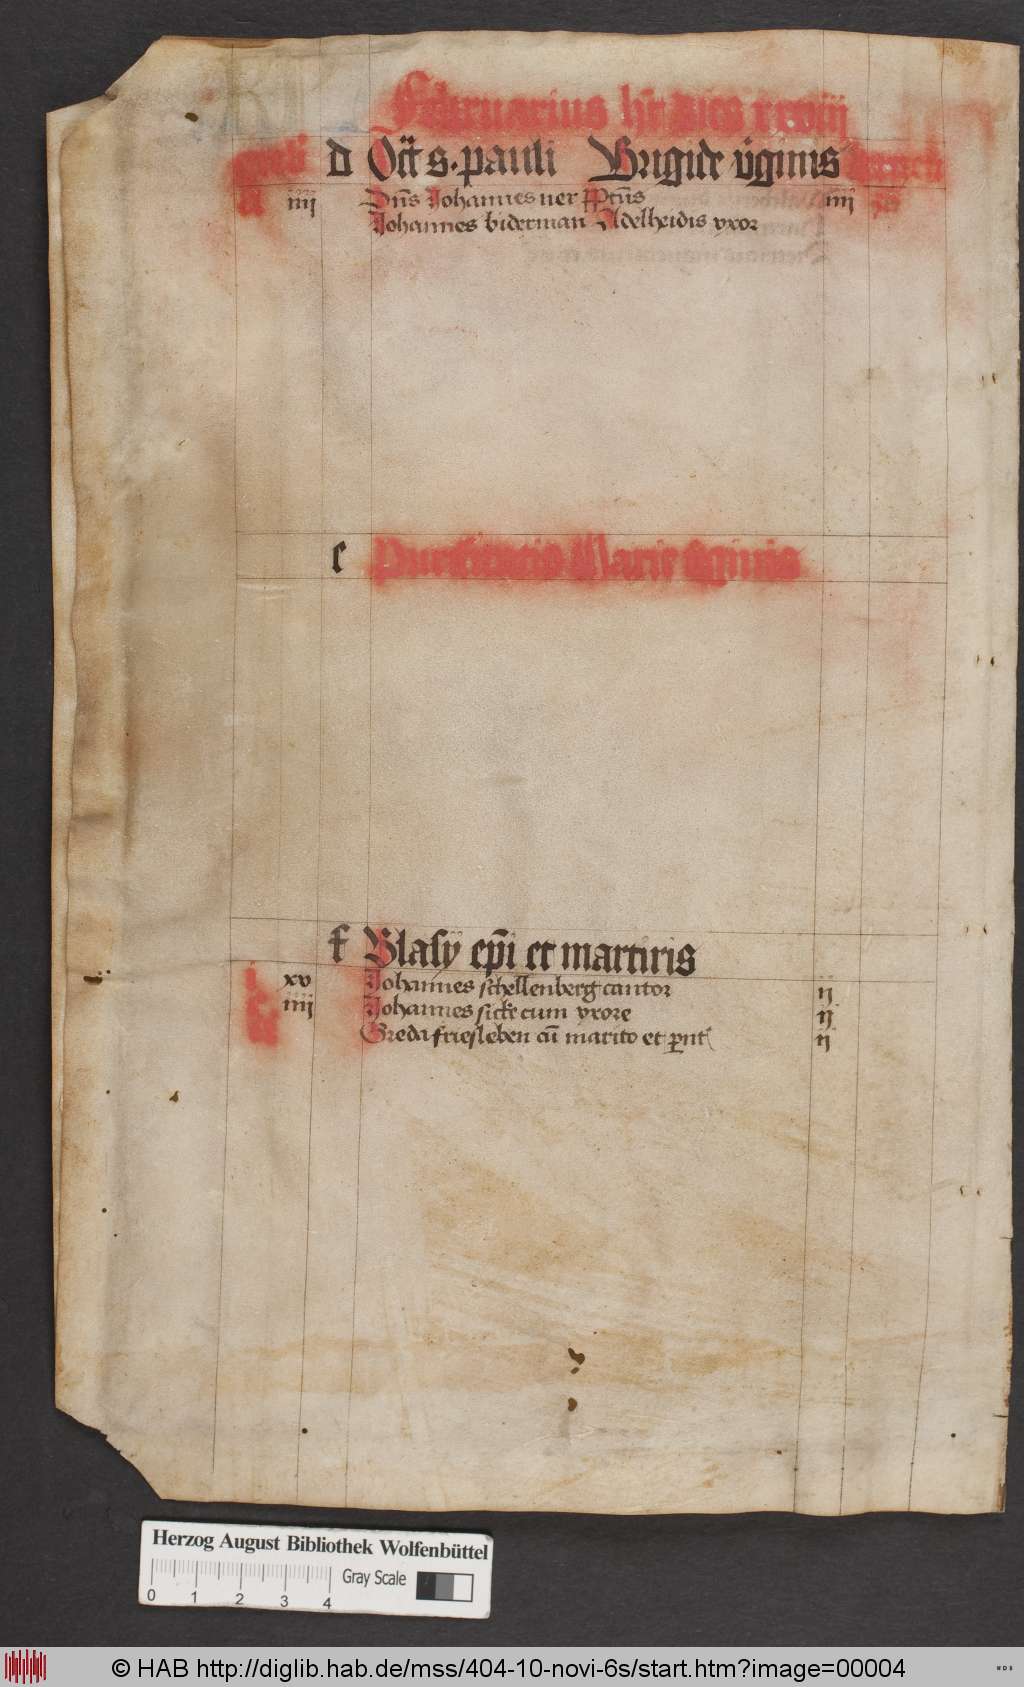 Februarius ht dies xxviij
d Oct̄ s. pauli Brigide v̄ginis
iiij Dn̄s Johannes ner iiij
Johannes biderman Adelheidis vxor
e Purificatio Marie v̄ginis
f Blasij ep̄i et martiris
xv Johannes schellenberg cantor ij
iiij Johannes sicke cum vxore ij
Greda friesleben cū marito et ij
Herzog August Bibliothek Wolfenbüttel
Gray Scale
0 1 2 3 4
© HAB http://diglib.hab.de/mss/404-10-novi-6s/start.htm?image=00004